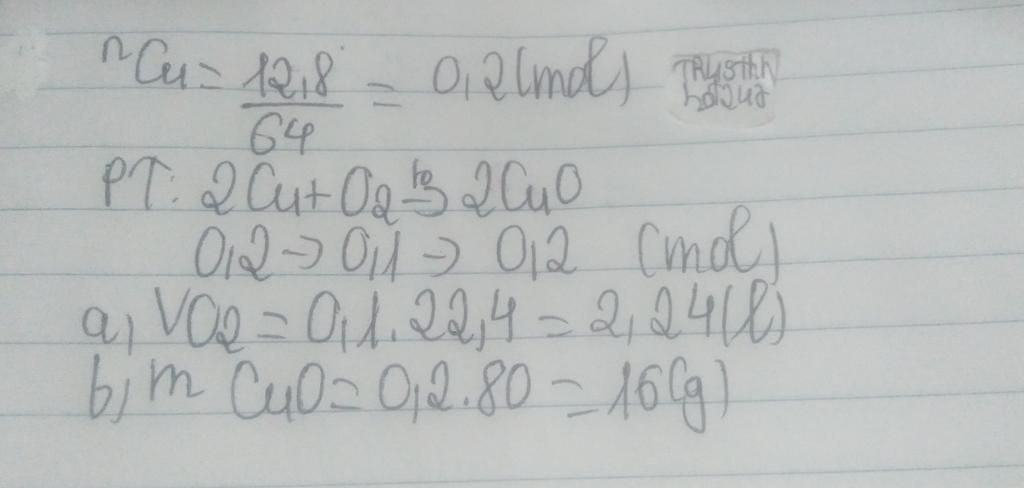 nCu = 12,8/64 = 0,2 (mol)
PT: 2Cu + O2 to→ 2CuO
0,2 → 0,1 → 0,2 (mol)
a, VO2 = 0,1.22,4 = 2,24 (l)
b, m CuO = 0,2.80 = 16 (g)